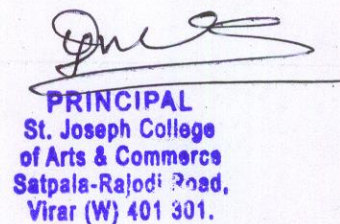 PRINCIPAL
St. Joseph College
of Arts & Commerce
Satpala-Rajodi Road,
Virar (W) 401 301.